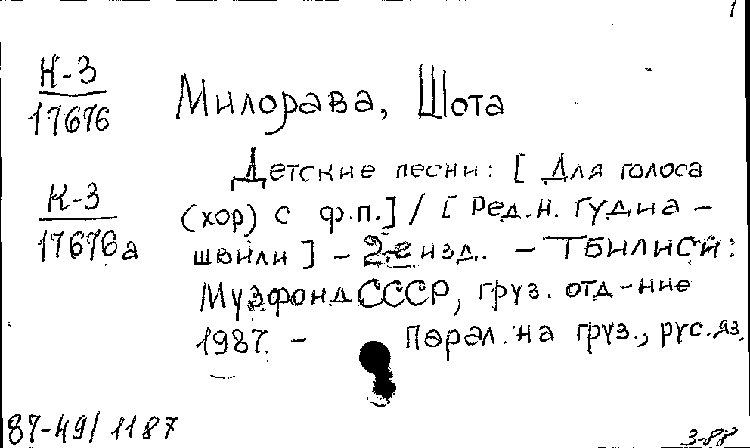 1
Н-3
17676
Милорава, Шота
Детские песни: [ Для голоса
К-3
17676а
(хор) с ф.п.] / [ Ред. Н. Гудиа-
швили ] - 2-е изд. - Тбилиси:
Музфонд СССР, груз. отд-ние
1987. - Парал. на груз., рус. яз.
87-49/1187
3-88